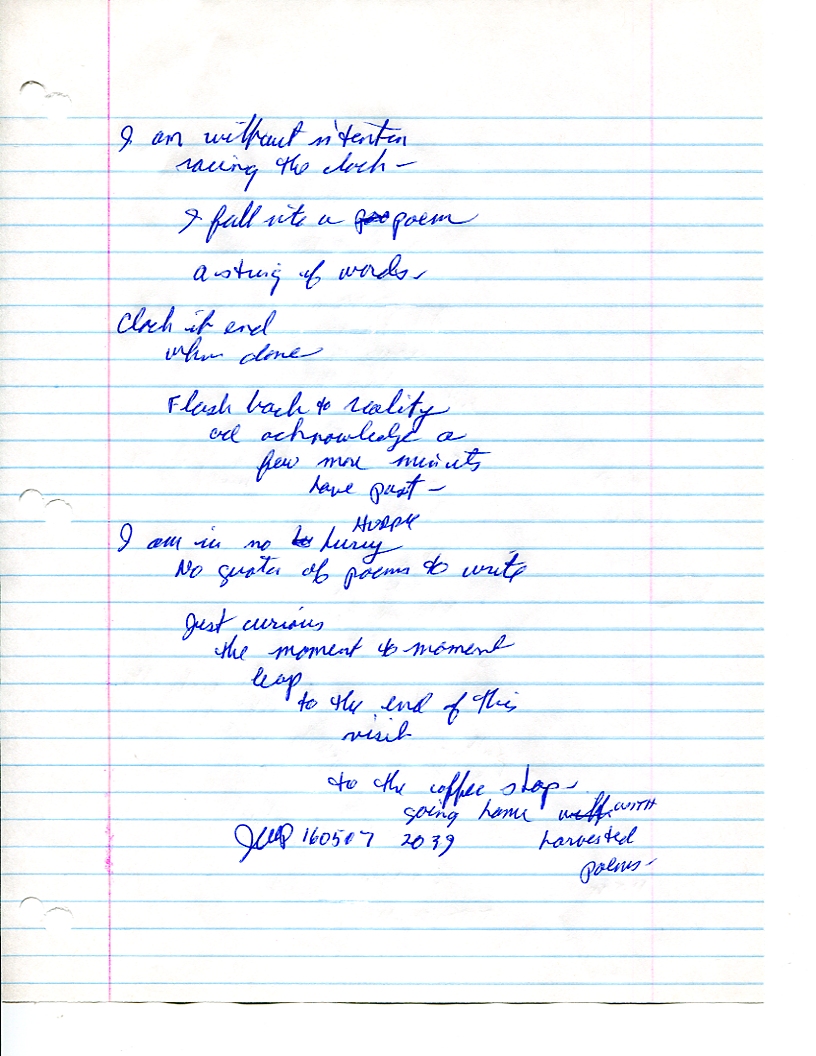 I am without intention
racing the clock –
I fall into a poem
a string of words –
Clock it end
when done
Flash back to reality
and acknowledge a
few more minutes
have past –
HURRY
I am in no hurry
No quota of poems to write
Just curious
the moment to moment
leap
to the end of this
visit
to the coffee shop –
going home WITH
harvested
poems –
160507 2039